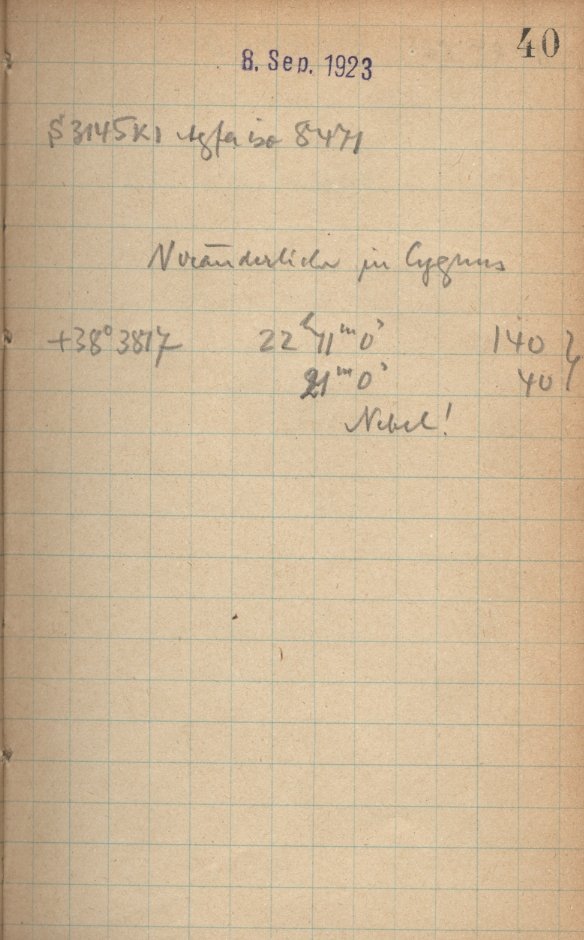 40
8. Sep. 1923
S 3145 K1 Agfa iso 8471
Veränderliche in Cygnus
+38° 3817 22ʰ 11ᵐ 0ˢ 140
21ᵐ 0ˢ 40
Nebel!